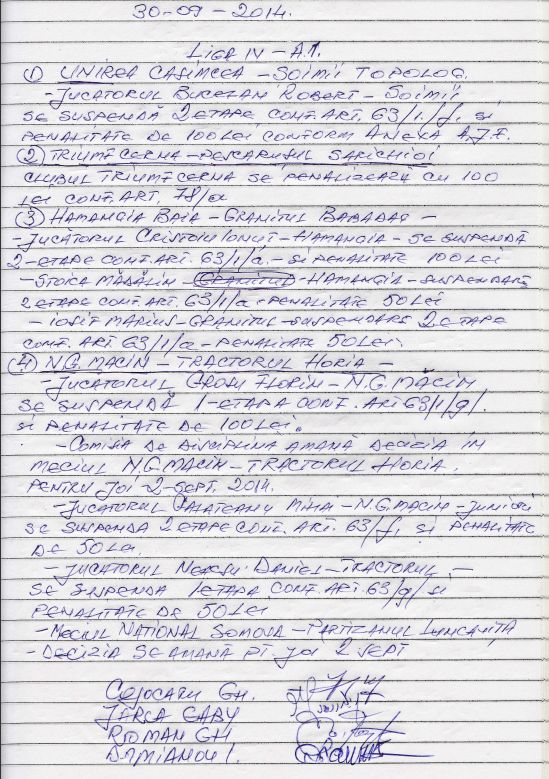 30-09-2014.
LIGA IV - A.1.
① UNIREA CASIMCEA - SOIMII TOPOLOG.
- JUCATORUL BUCEFAN ROBERT - SOIMII
SE SUSPENDĂ 2 ETAPE CONF. ART. 63/1/f. si
PENALITATE DE 100 LEI CONFORM ANEXA A.J.F.
② TRIUMF CERNA - PESCARUSUL SARICHIOI
CLUBUL TRIUMF CERNA SE PENALIZEAZĂ CU 100
LEI CONF. ART. 78/a
③ HAMANGIA BAIA - GRANITUL BABADAG -
- JUCĂTORUL CRISTOIU IONUT - HAMANGIA - SE SUSPENDĂ
2 - ETAPE CONF. ART. 63/1/a. - si PENALITATE 100 LEI
- STOICA MĂDĂLIN - GRANITUL - HAMANGIA - SUSPENDARE
2 ETAPE CONF. ART. 63/1/a - PENALITATE 50 LEI
- IOSIF MARIUS - GRANITUL - SUSPENDARE 2 ETAPE
CONF. ART 63/1/a - PENALITATE 50 LEI.
④ N.G. MACIN - TRACTORUL HORIA -
- JUCATORUL GROSU FLORIN - N.G. MĂCIN
SE SUSPENDĂ 1 - ETAPA CONF. ART 63/1/g/.
si PENALITATE DE 100 LEI.
- COMISIA DE DISCIPLINĂ AMANĂ DECIZIA IN
MECIUL N.G. MACIN - TRACTORUL HORIA.
PENTRU JOI - 2 - SEPT. 2014.
- JUCATORUL GALATEANU MIHAI - N.G. MACIN - JUNIORI
SE SUSPENDA 2 ETAPE CONT. ART. 63/f, si PENALITATE
DE 50 LEI.
- JUCATORUL NEACSU DANIEL - TRACTORUL -
SE SUSPENDA 1 ETAPA CONF. ART. 63/g/ si
PENALITATE DE 50 LEI
- MECIUL NATIONAL SOMOVA - PARTIZANUL LUNCAVITA
- DECIZIA SE AMANĂ PT. JOI 2 SEPT
COJOCARU GH.
JARCA GABY
ROMAN GH
DAMIANOV I.